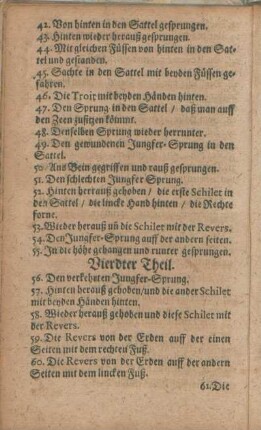 42. Von hinten in den Sattel gesprungen.
43. Hinten wieder herauß gesprungen.
44. Mit gleichen Füssen von hinten in den Sat-
tel und gestanden.
45. Sachte in den Sattel mit beyden Füssen ge-
fahren.
46. Die Troit mit beyden Händen hinten.
47. Den Sprung in den Sattel / daß man auff
den Zeen zusitzen kömmt.
48. Denselben Sprung wieder herrunter.
49. Den gewundenen Jungfer-Sprung in den
Sattel.
50. Ans Bein gegriffen und rauß gesprungen.
51. Den schlechten Jungfer Sprung.
52. Hinten herrauß gehoben / die erste Schiler in
den Sattel / die lincke Hand hinten / die Rechte
forne.
53. Wieder herauß uñ die Schiler mit der Revers.
54. Den Jungfer-Sprung auff der andern seiten.
55. In die höhe gehangen und runter gesprungen.
Vierdter Theil.
56. Den verkehrten Jungfer-Sprung.
57. Hinten herauß gehoben / und die ander Schiler
mit beyden Händen hinten.
58. Wieder herauß gehoben und diese Schiler mit
der Revers.
59. Die Revers von der Erden auff der einen
Seiten mit dem rechten Fuß.
60. Die Revers von der Erden auff der andern
Seiten mit dem lincken Fuß.
61. Die